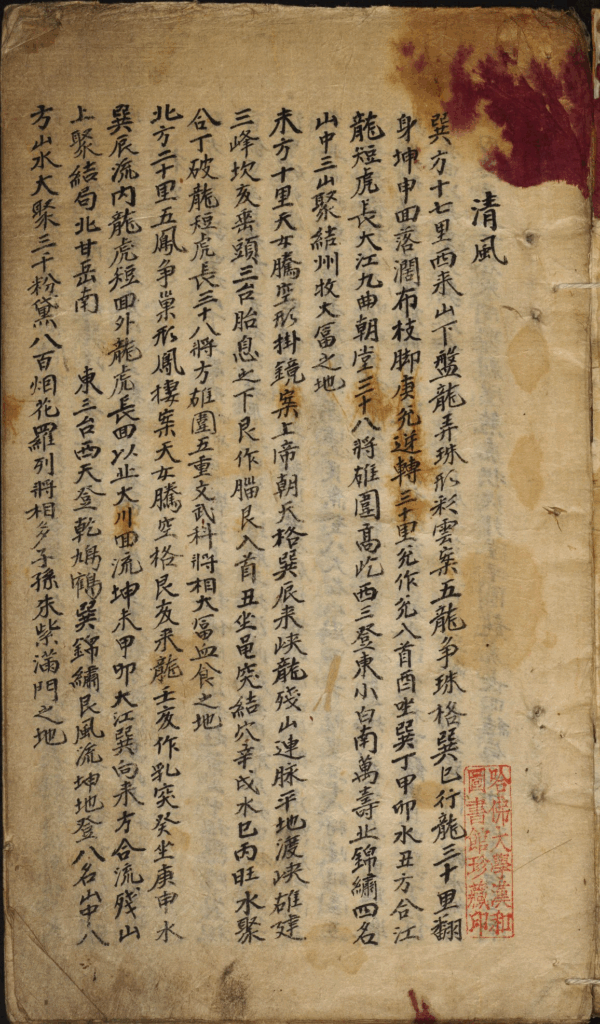 清風
巽方十七里西来山下盤龍弄珠形彩雲案五龍争珠格巽巳行龍三十里翻
身坤申回落濶布枝脚庚兊逆轉三十里兊作兊入首酉坐巽丁甲卯水丑方合江
龍短虎長大江九曲朝堂三十八將雄圍高屹西三登東小白南萬壽北錦繡四名
山中三山聚結州牧大冨之地
未方十里天女騰空形掛鏡案上帝朝天格巽辰来峽龍殘山連脉平地渡峽雄建
三峰坎亥垂頭三台胎息之下艮作腦艮入首丑坐黾突結穴辛戌水巳丙旺水聚
合丁破龍短虎長三十八將方雄圍五重文武科將相大冨血食之地
北方二十里五鳳争巢形鳳樓案天女騰空格艮亥来龍壬亥作乳突癸坐庚申水
巽辰流内龍虎短回外龍虎長回以止大川回流坤未甲卯大江巽向来方合流殘山
上聚結局北甘岳南 東三台西天登乾鳩鶴巽錦繡艮風流坤地登八名山中八
方山水大聚三千粉黛八百烟花羅列將相多子孫朱紫滿門之地
哈佛大學漢和
圖書館珍藏印